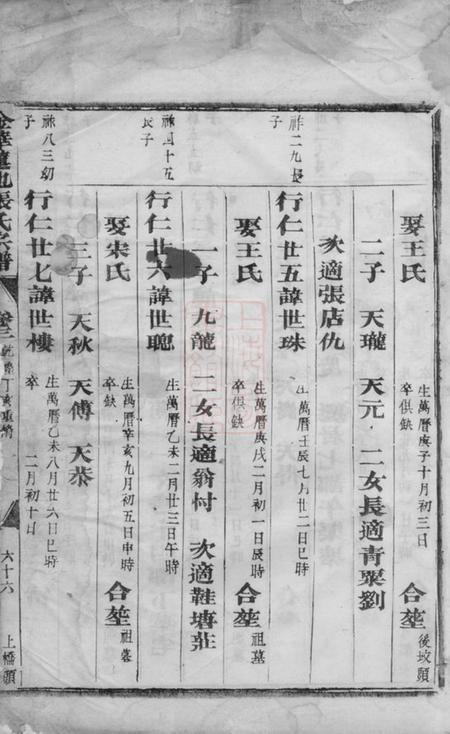 娶王氏 生萬曆庚子十月初三日 卒俱缺 合塟 後坟頭
二子 天瓏 天元 二女長適青粟劉
次適張店仇
祚二九長子
行仁廿五諱世珠 生萬曆壬辰七月廿二日巳時
娶王氏 生萬曆庚戌二月初一日辰時 卒俱缺 合塟 祖墓
一子 九龍 二女長適翁村 次適鞋塘莊
祚四十五長子
行仁廿六諱世聰 生萬曆乙未二月廿三日午時
娶宋氏 生萬曆辛亥九月初五日申時 卒缺 合塟 祖墓
三子 天秋 天傅 天恭
祚八三初子
行仁廿七諱世樓 生萬曆乙未八月廿六日巳時 卒 二月初十日
張氏宗譜 卷三 乾隆丁亥重脩 六十六 上橋頭